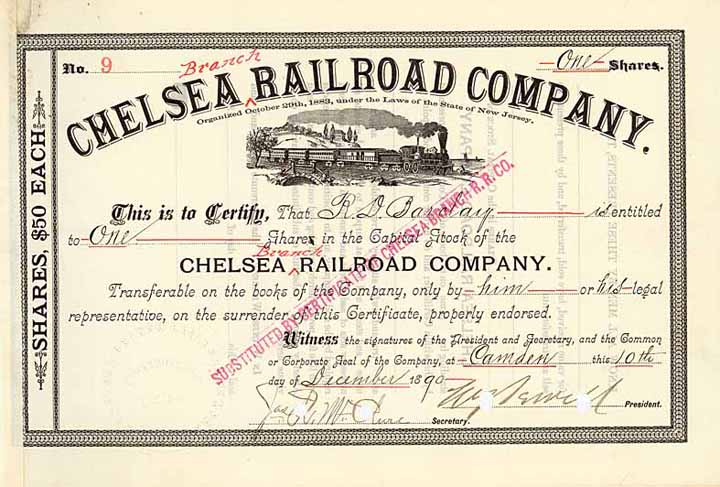 No. 9
One Shares.
Branch
CHELSEA ^ RAILROAD COMPANY.
Organized October 29th, 1883, under the Laws of the State of New Jersey.
SHARES, $50 EACH.
This is to Certify, That R. D. Barclay is entitled
to One Share in the Capital Stock of the
Branch
CHELSEA ^ RAILROAD COMPANY.
Transferable on the books of the Company, only by him or his legal
representative, on the surrender of this Certificate, properly endorsed.
Witness the signatures of the President and Secretary, and the Common
or Corporate Seal of the Company, at Camden this 10th
day of December 1890
President.
Jos. Mc Clure
Secretary.
SUBSTITUTED BY CERTIFICATE OF CHELSEA BRANCH R.R. CO.